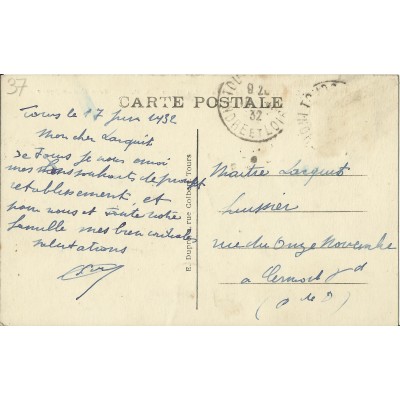 37
CARTE POSTALE
Tours le 17 juin 1932
Mon cher Lasquit
De Tours je vous envoi
mes souhaits de prompt
retablissement, et
pour vous et toute votre
famille mes bien cordiales
salutations
E. Dupré, rue Colbert, Tours
9 20
32
INDRE ET LOIRE
Maitre Lasquit
huissier
rue du Onze Novembre
a Clermont
(P de D)